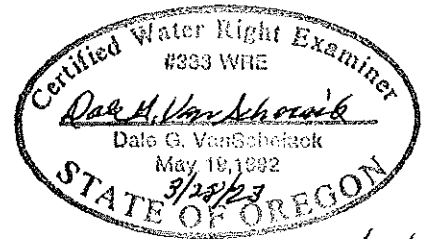 Certified Water Right Examiner
#333 WRE
Dale G. VanSchoiack
May 19, 1992
3/28/23
STATE OF OREGON